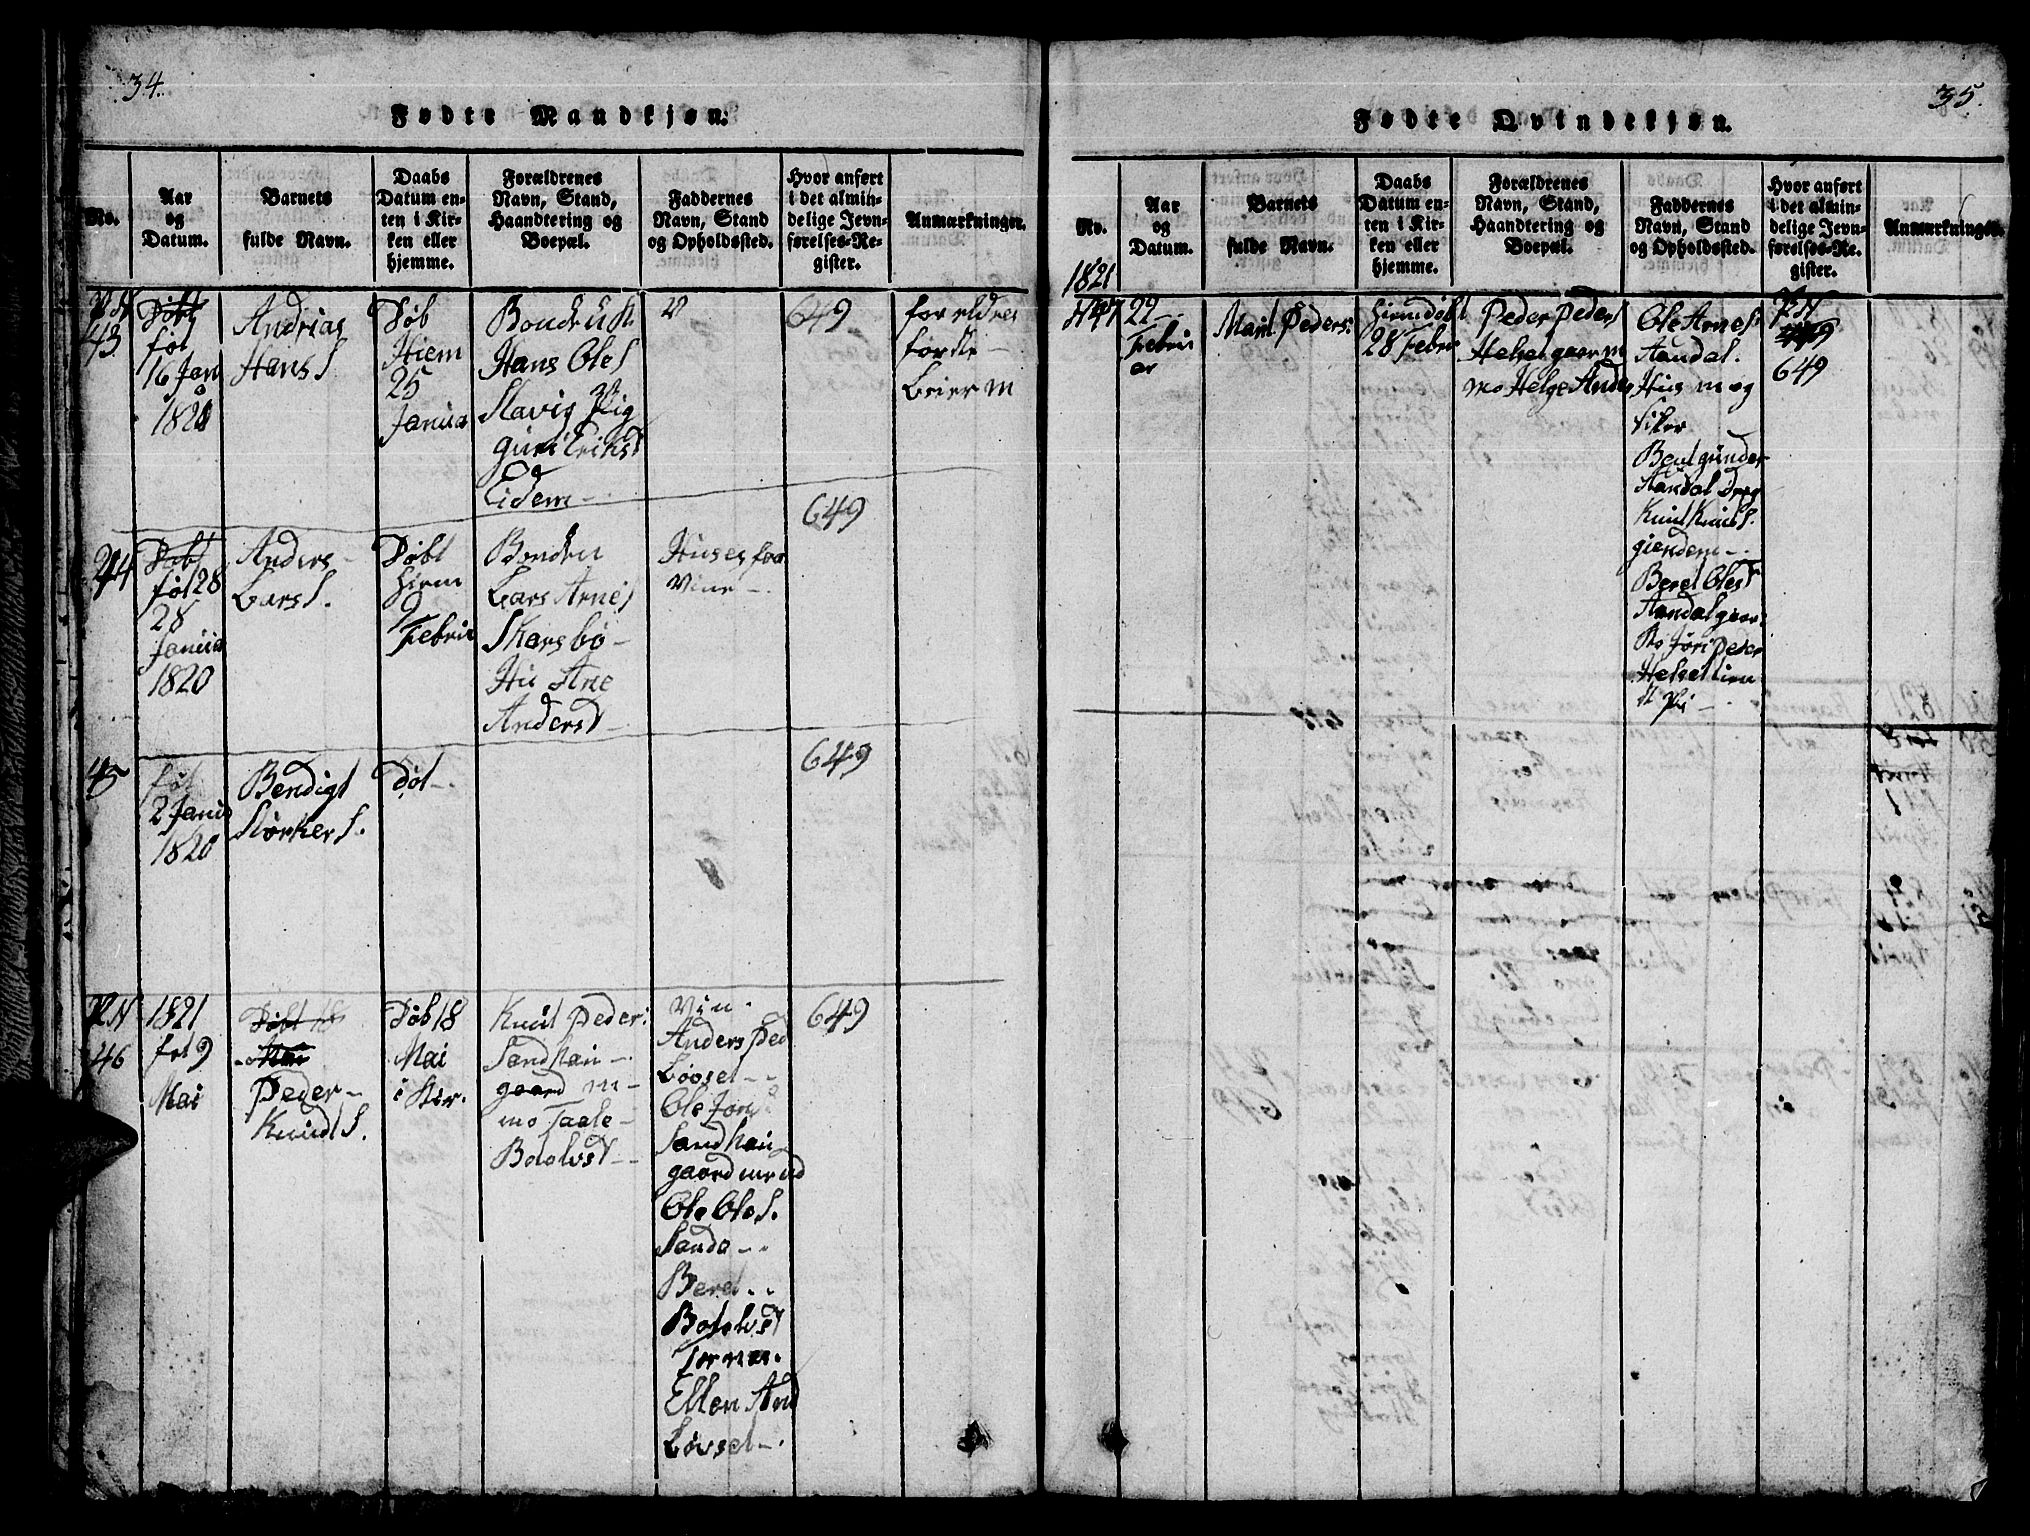 34.
Fødte Mandkjøn.
No.
Aar
og
Datum.
Barnets
fulde Navn.
Daabs
Datum en-
ten i Kir-
ken eller
hjemme.
Forældrenes
Navn, Stand,
Haandtering og
Boepæl.
Faddernes
Navn, Stand
og Opholdssted.
Hvor anført
i det almin-
delige Jevn-
førelses-Re-
gister.
Anmærkninger.
43
Døbt
føt
16 Jan
1821
Andrias
Hans S
Døb
Hiem
25
Janua
Bond
Hans Ole S
Slavig Pig
guri Eriks D
Eidem
649
foreldres
Leier m
44
Døbt
føt 28
28
Janua
1820
Anders
Lars S.
Døbt
hiem
9
Febru
Bonden
Lars Arne S
Skarsbø
Hu Ane
Anders D
649
45
føt
2 Janu
1820
Bendigt
Størker S.
Døt
649
No
46
1821
føt 9
Mai
Døbt 18
Mai
Peder
Knudt S.
Døb 18
Mai
i Kir.
Knut Peder
Sandhau
gaard m
mo Taale
Botolvs D
Vin
Anders Ped
Løvsel
Ole Jons
Sandhau
gaard
Ole Ole S.
Sanda
Beret
Botolvs D
Ellen And
Løvsel
649
35.
Fødte Qvindekjøn.
No.
1821
Aar
og
Datum.
Barnets
fulde Navn.
Daabs
Datum en-
ten i Kir-
ken eller
hjemme.
Forældrenes
Navn, Stand,
Haandtering og
Boepæl.
Faddernes
Navn, Stand
og Opholdssted.
Hvor anført
i det almin-
delige Jevn-
førelses-Re-
gister.
Anmærkninger.
47
22
Febru
ar
Marit Peders
hiemdøbt
28 Febr
Peder Peder S
Helset gaar m
mo Helge Anders
Ole Arnes
Aandal
Hus m og
fisker
Beret gunder
Aandal Dreg
Knut Knut S.
giendem
Beret Oles D
Aandal gaar
Ko Jøri Peder
Helset lien
Pi
649